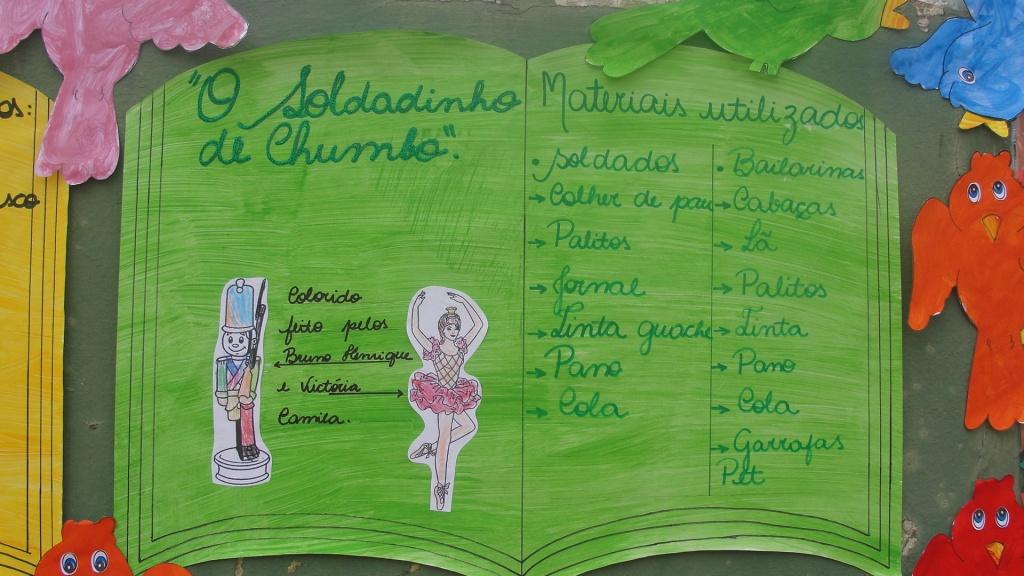 os:
sco
"O Soldadinho
de Chumbo".
Colorido
feito pelos
Bruno Henrique
e Victória
Camila.
Materiais utilizados
• Soldados
→ Colher de pau
→ Palitos
→ Jornal
→ Tinta guache
→ Pano
→ Cola
• Bailarinas
→ Cabaças
→ Lã
→ Palitos
→ Tinta
→ Pano
→ Cola
→ Garrafas
Pet